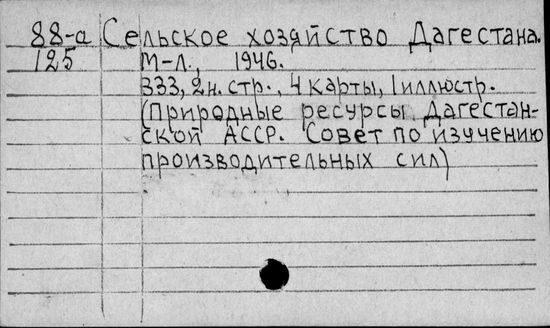 88-а Сельское хозяйство Дагестана.
125 М-Л., 1946.
333, 2н. стр., 4 карты, 1 иллюстр.
(Природные ресурсы Дагестан-
ской АССР. Совет по изучению
производительных сил)